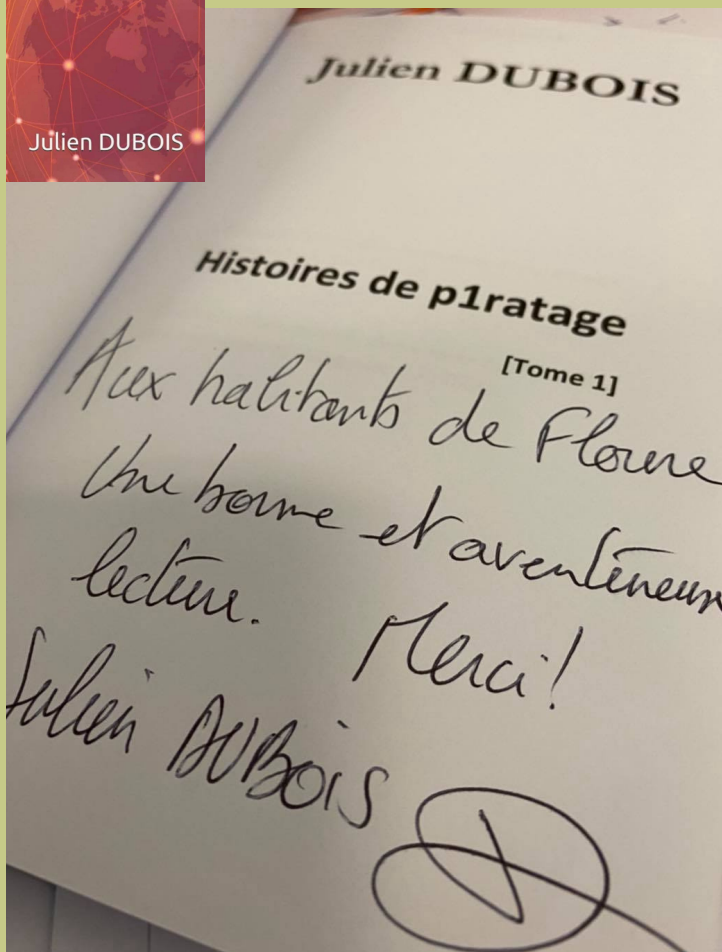 Julien DUBOIS
Julien DUBOIS
Histoires de p1ratage
[Tome 1]
Aux habitants de Floure
Une bonne et aventureuse
lecture. Merci!
Julien DUBOIS